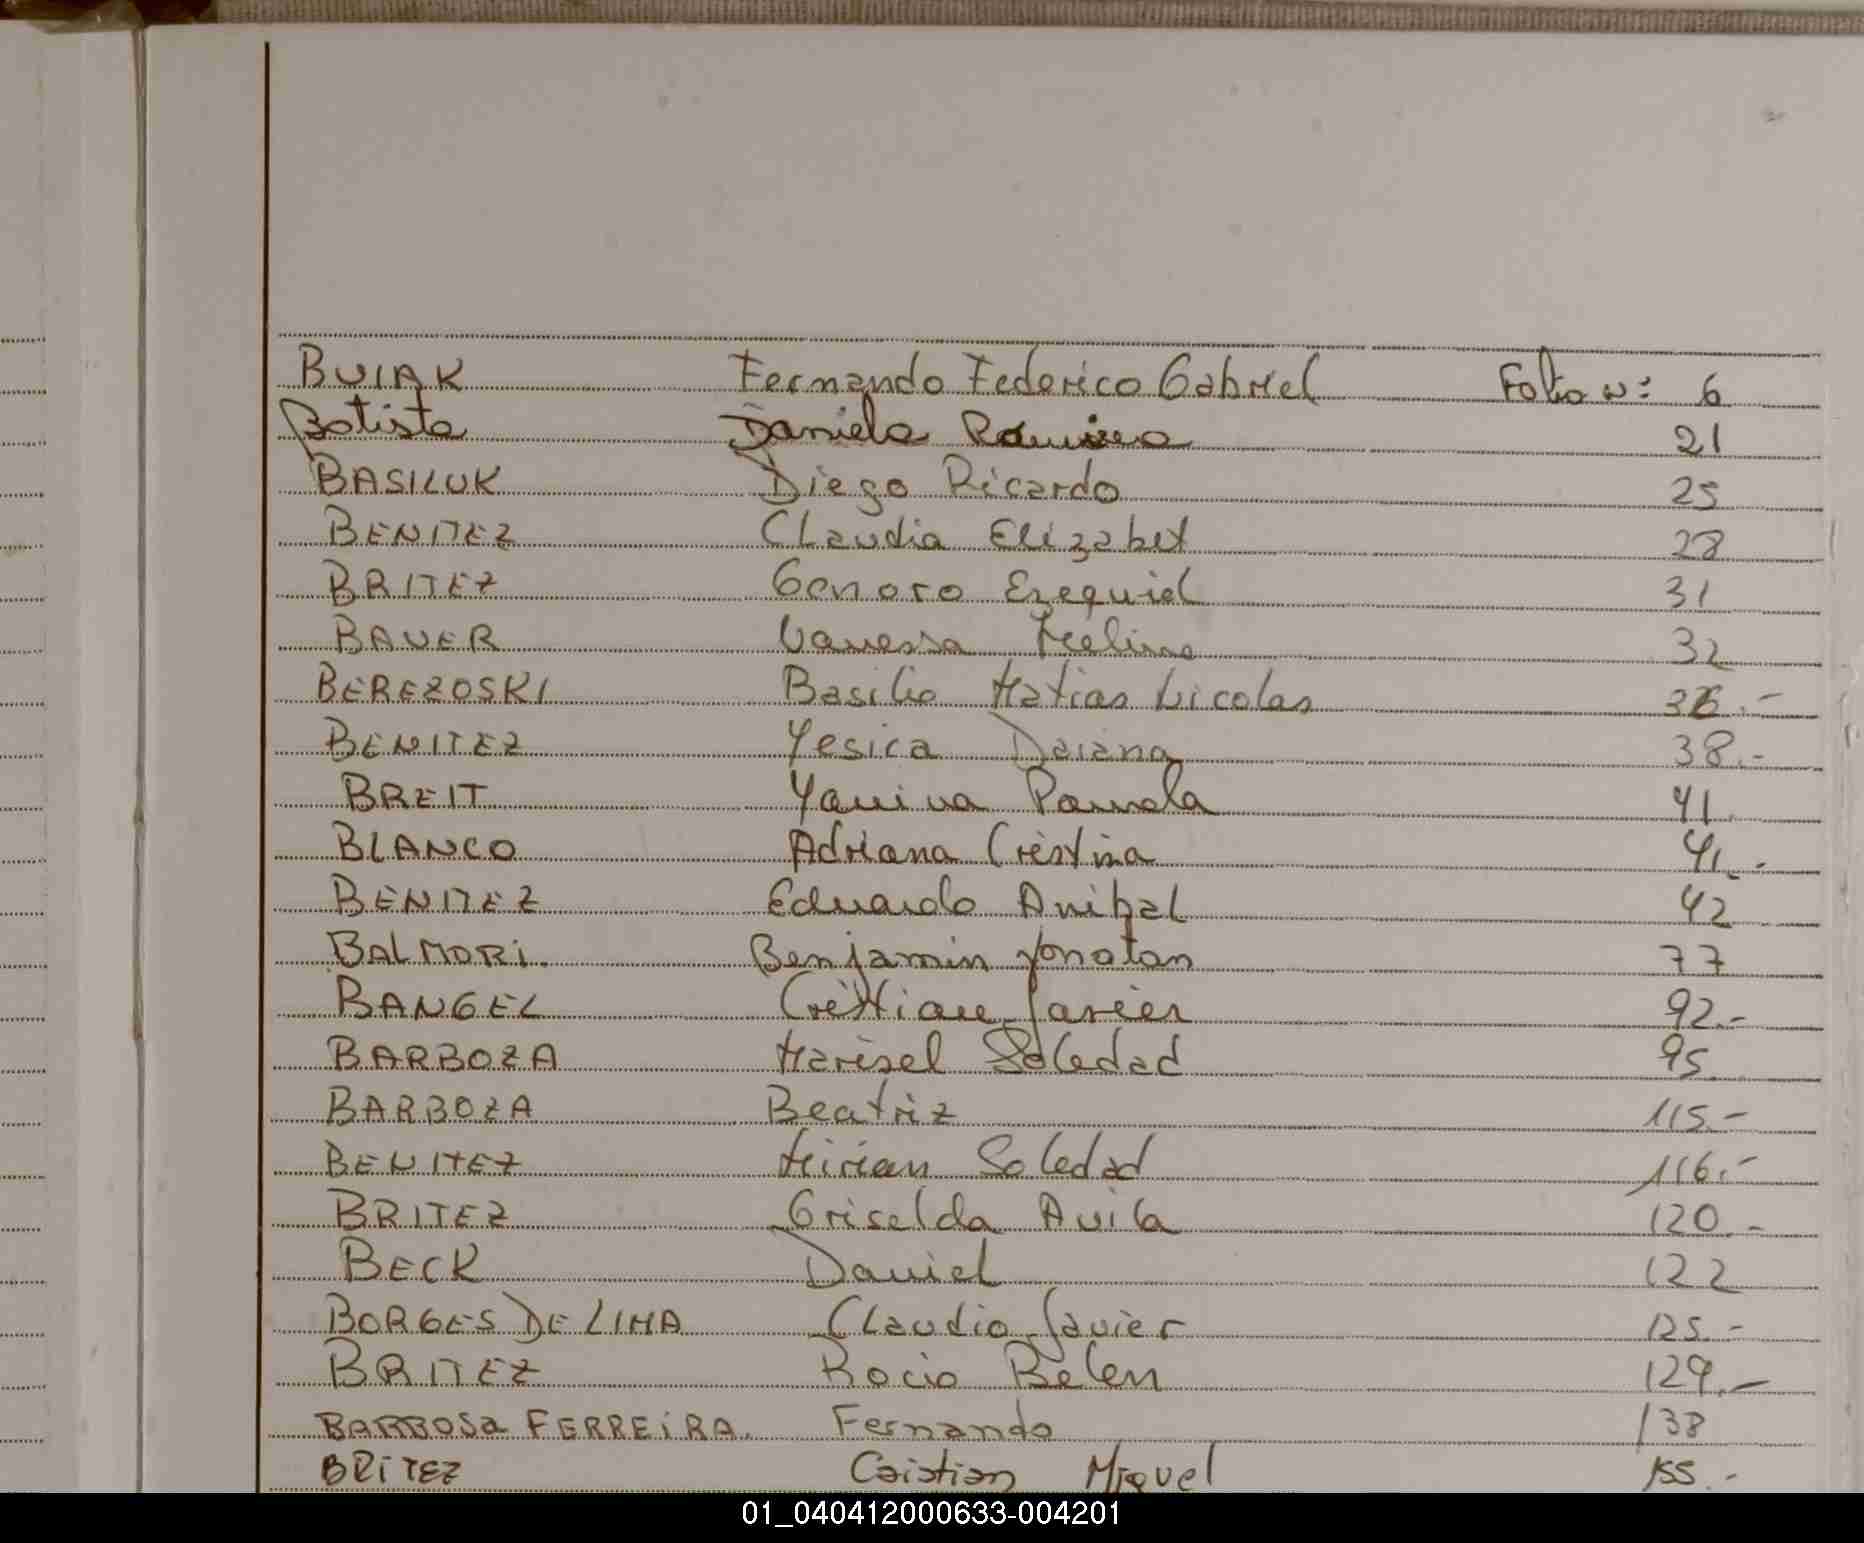 BUIAK Fernando Federico Gabriel Folio N: 6
Batista Daniela Ramisea 21
BASILUK Diego Ricardo 25
BENITEZ Claudia Elizabet 28
BRITEZ Genaro Ezequiel 31
BAUER Vanessa Melina 32
BEREZOSKI Basilio Matias Nicolas 36.-
BENITEZ Yesica Daiana 38.-
BREIT Yanina Pamela 41.
BLANCO Adriana Cristina 41.-
BENITEZ Eduardo Anibal 42
BALMORI. Benjamin Jonatan 77
BANGEL Cristian Javier 92.-
BARBOZA Marisel Soledad 95
BARBOZA Beatriz 115.-
BENITEZ Mirian Soledad 116.-
BRITEZ Griselda Avila 120.-
BECK Daniel 122
BORGES DE LIMA Claudio Javier 125.-
BRITEZ Rocio Belen 129.-
BARBOSA FERREIRA. Fernando 138
BRITEZ Cristian Miguel 155.-
01_040412000633-004201